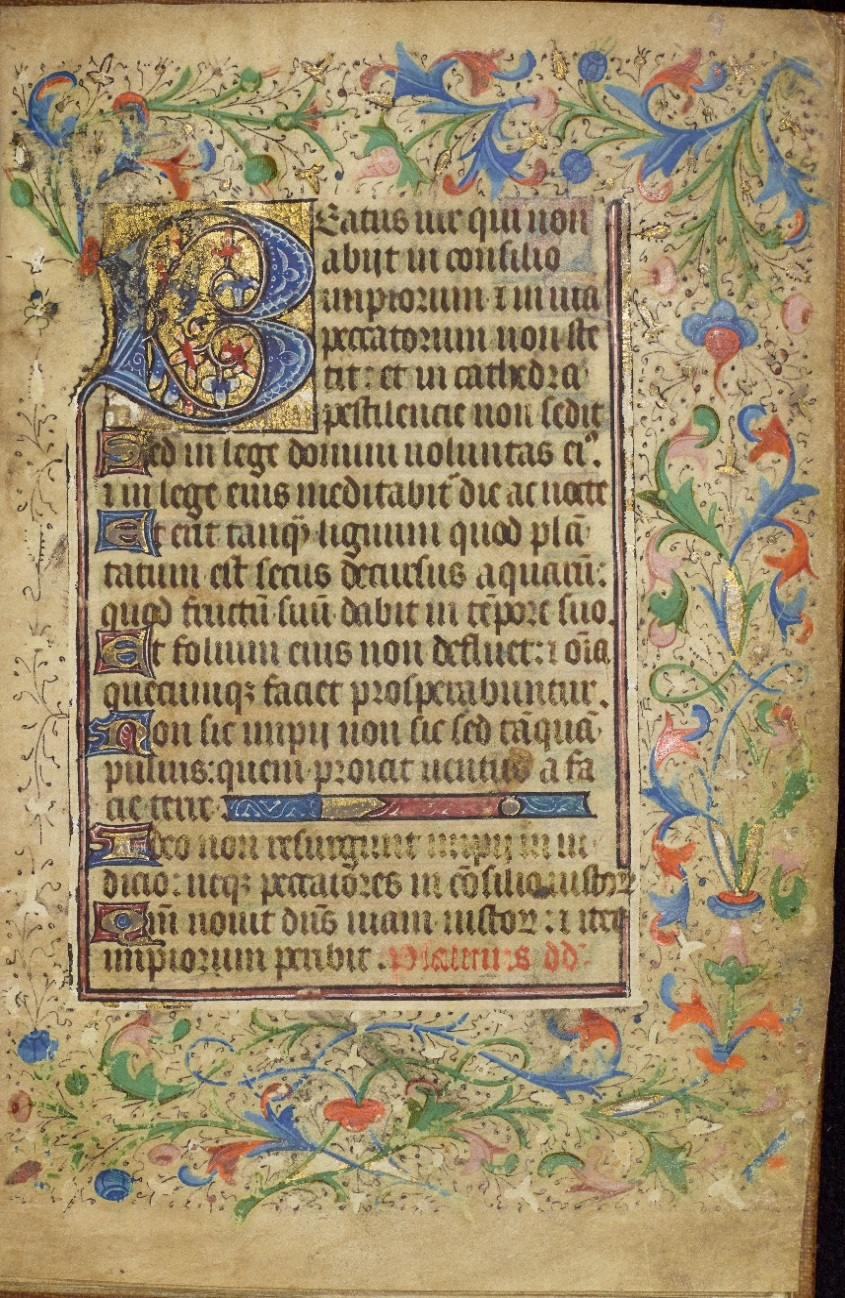 Beatus uir qui non
abijt in consilio
impiorum ⁊ in uia
peccatorum non ste
tit: et in cathedra
pestilencie non sedit
Sed in lege domini uoluntas ei⁹.
⁊ in lege eius meditabit᷑ die ac nocte
Et erit tanq̄ lignum quod plā
tatum est secus decursus aquarū:
quod fructū suū dabit in tēpore suo.
Et folium eius non defluet: ⁊ oīa
quecumqꝫ faciet prosperabuntur.
Non sic impij non sic sed tāquā
puluis: quem proicit uentus a fa
cie terre.
Ideo non resurgunt impij in iu
dicio: neqꝫ peccatores in cōsilio iustoꝝ
Qm̄ nouit dūs uiam iustoꝝ: ⁊ iter
impiorum peribit. dd